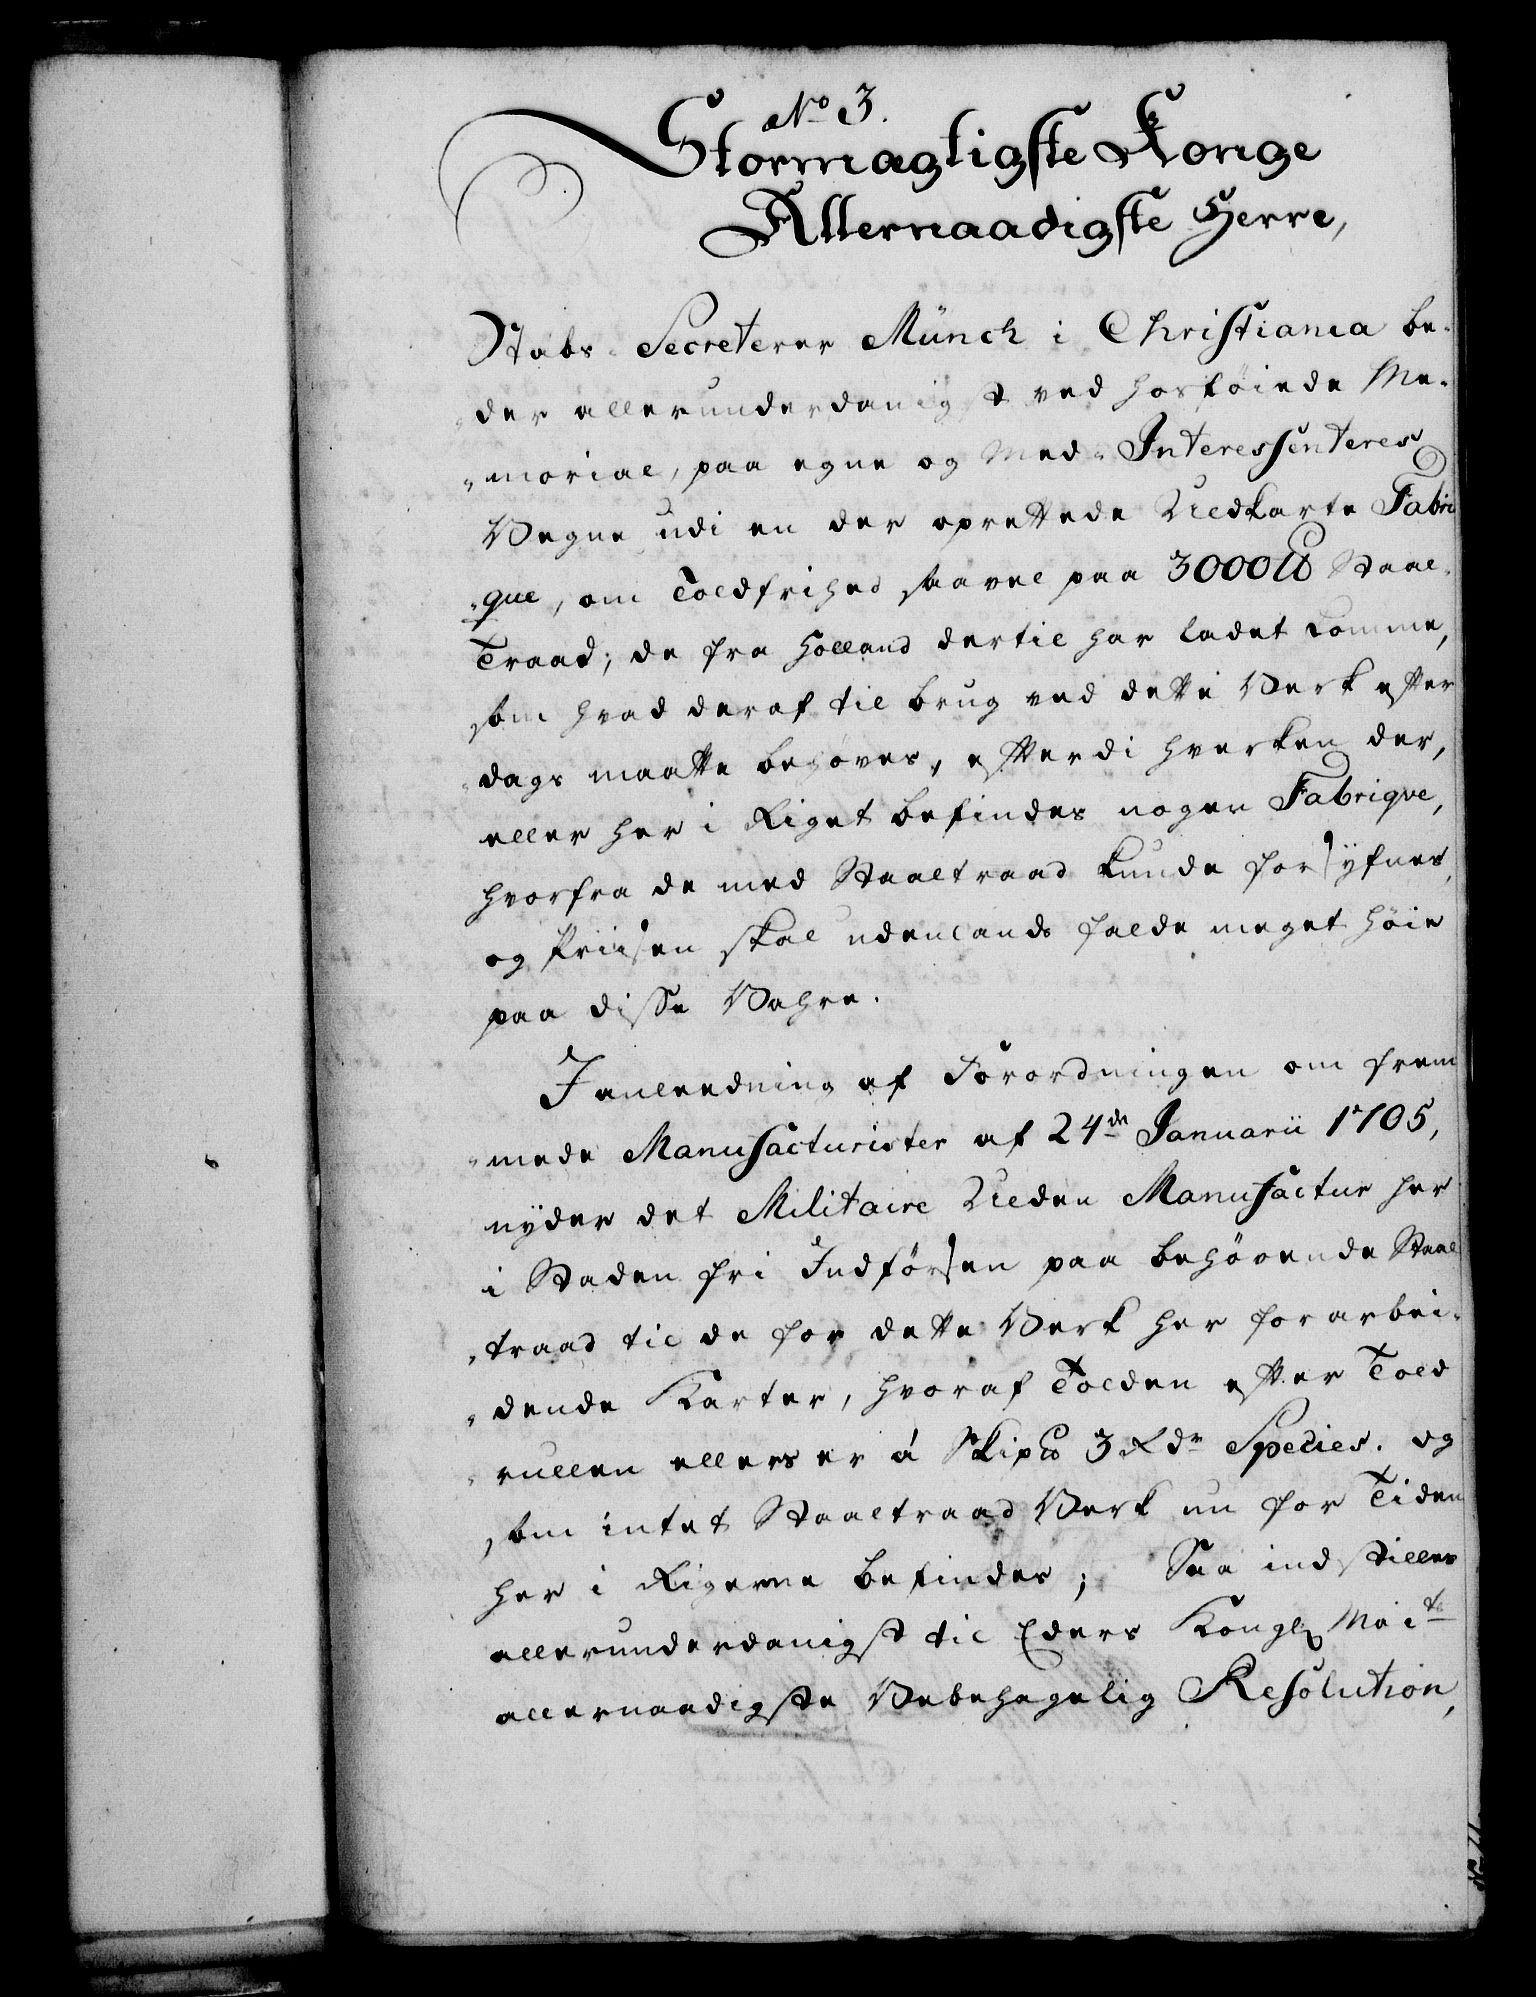 No 3.
Stormægtigste Konge
Allernaadigste Herre,
Stabs-Secreterer Münch i Christiania be-
„der allerunderdanigst ved hosføiede Me-
„morial, paa egne og Med-Interessenteres
Vegne udi en der oprettede Uldkarte Fabri
„que, om Toldfrihed saavel paa 3000 ℔ Staal-
Traad; de fra Holland dertil har ladet komme,
som hvad deraf til brug ved dette Verk efter
„dags maatte behøves, efterdi hverken der,
eller her i Riget befindes nogen Fabrique,
hvorfra de med Staaltraad kunde forsyfnes,
og Priisen skal udenlands falde meget høie
paa disse Vahre.
I anleedning af Forordningen om frem
„mede Manufacturister af 24de Januarii 1705,
nyder det Militaire Ulden Manufactur her
i Staden fri Indførsen paa behøvende Staal
„traad til de for dette Verk her forarbei-
„dende Karter, hvoraf Tolden efter Told
„rullen ellers er á Skip℔ 3 Rdr Species. og
som intet Staaltraad Verk nu for Tiden
her i Rigerne befindes; Saa indstilles
allerunderdanigst til Eders Kongl. Maits
allernaadigste Velbehagelig Resolution,